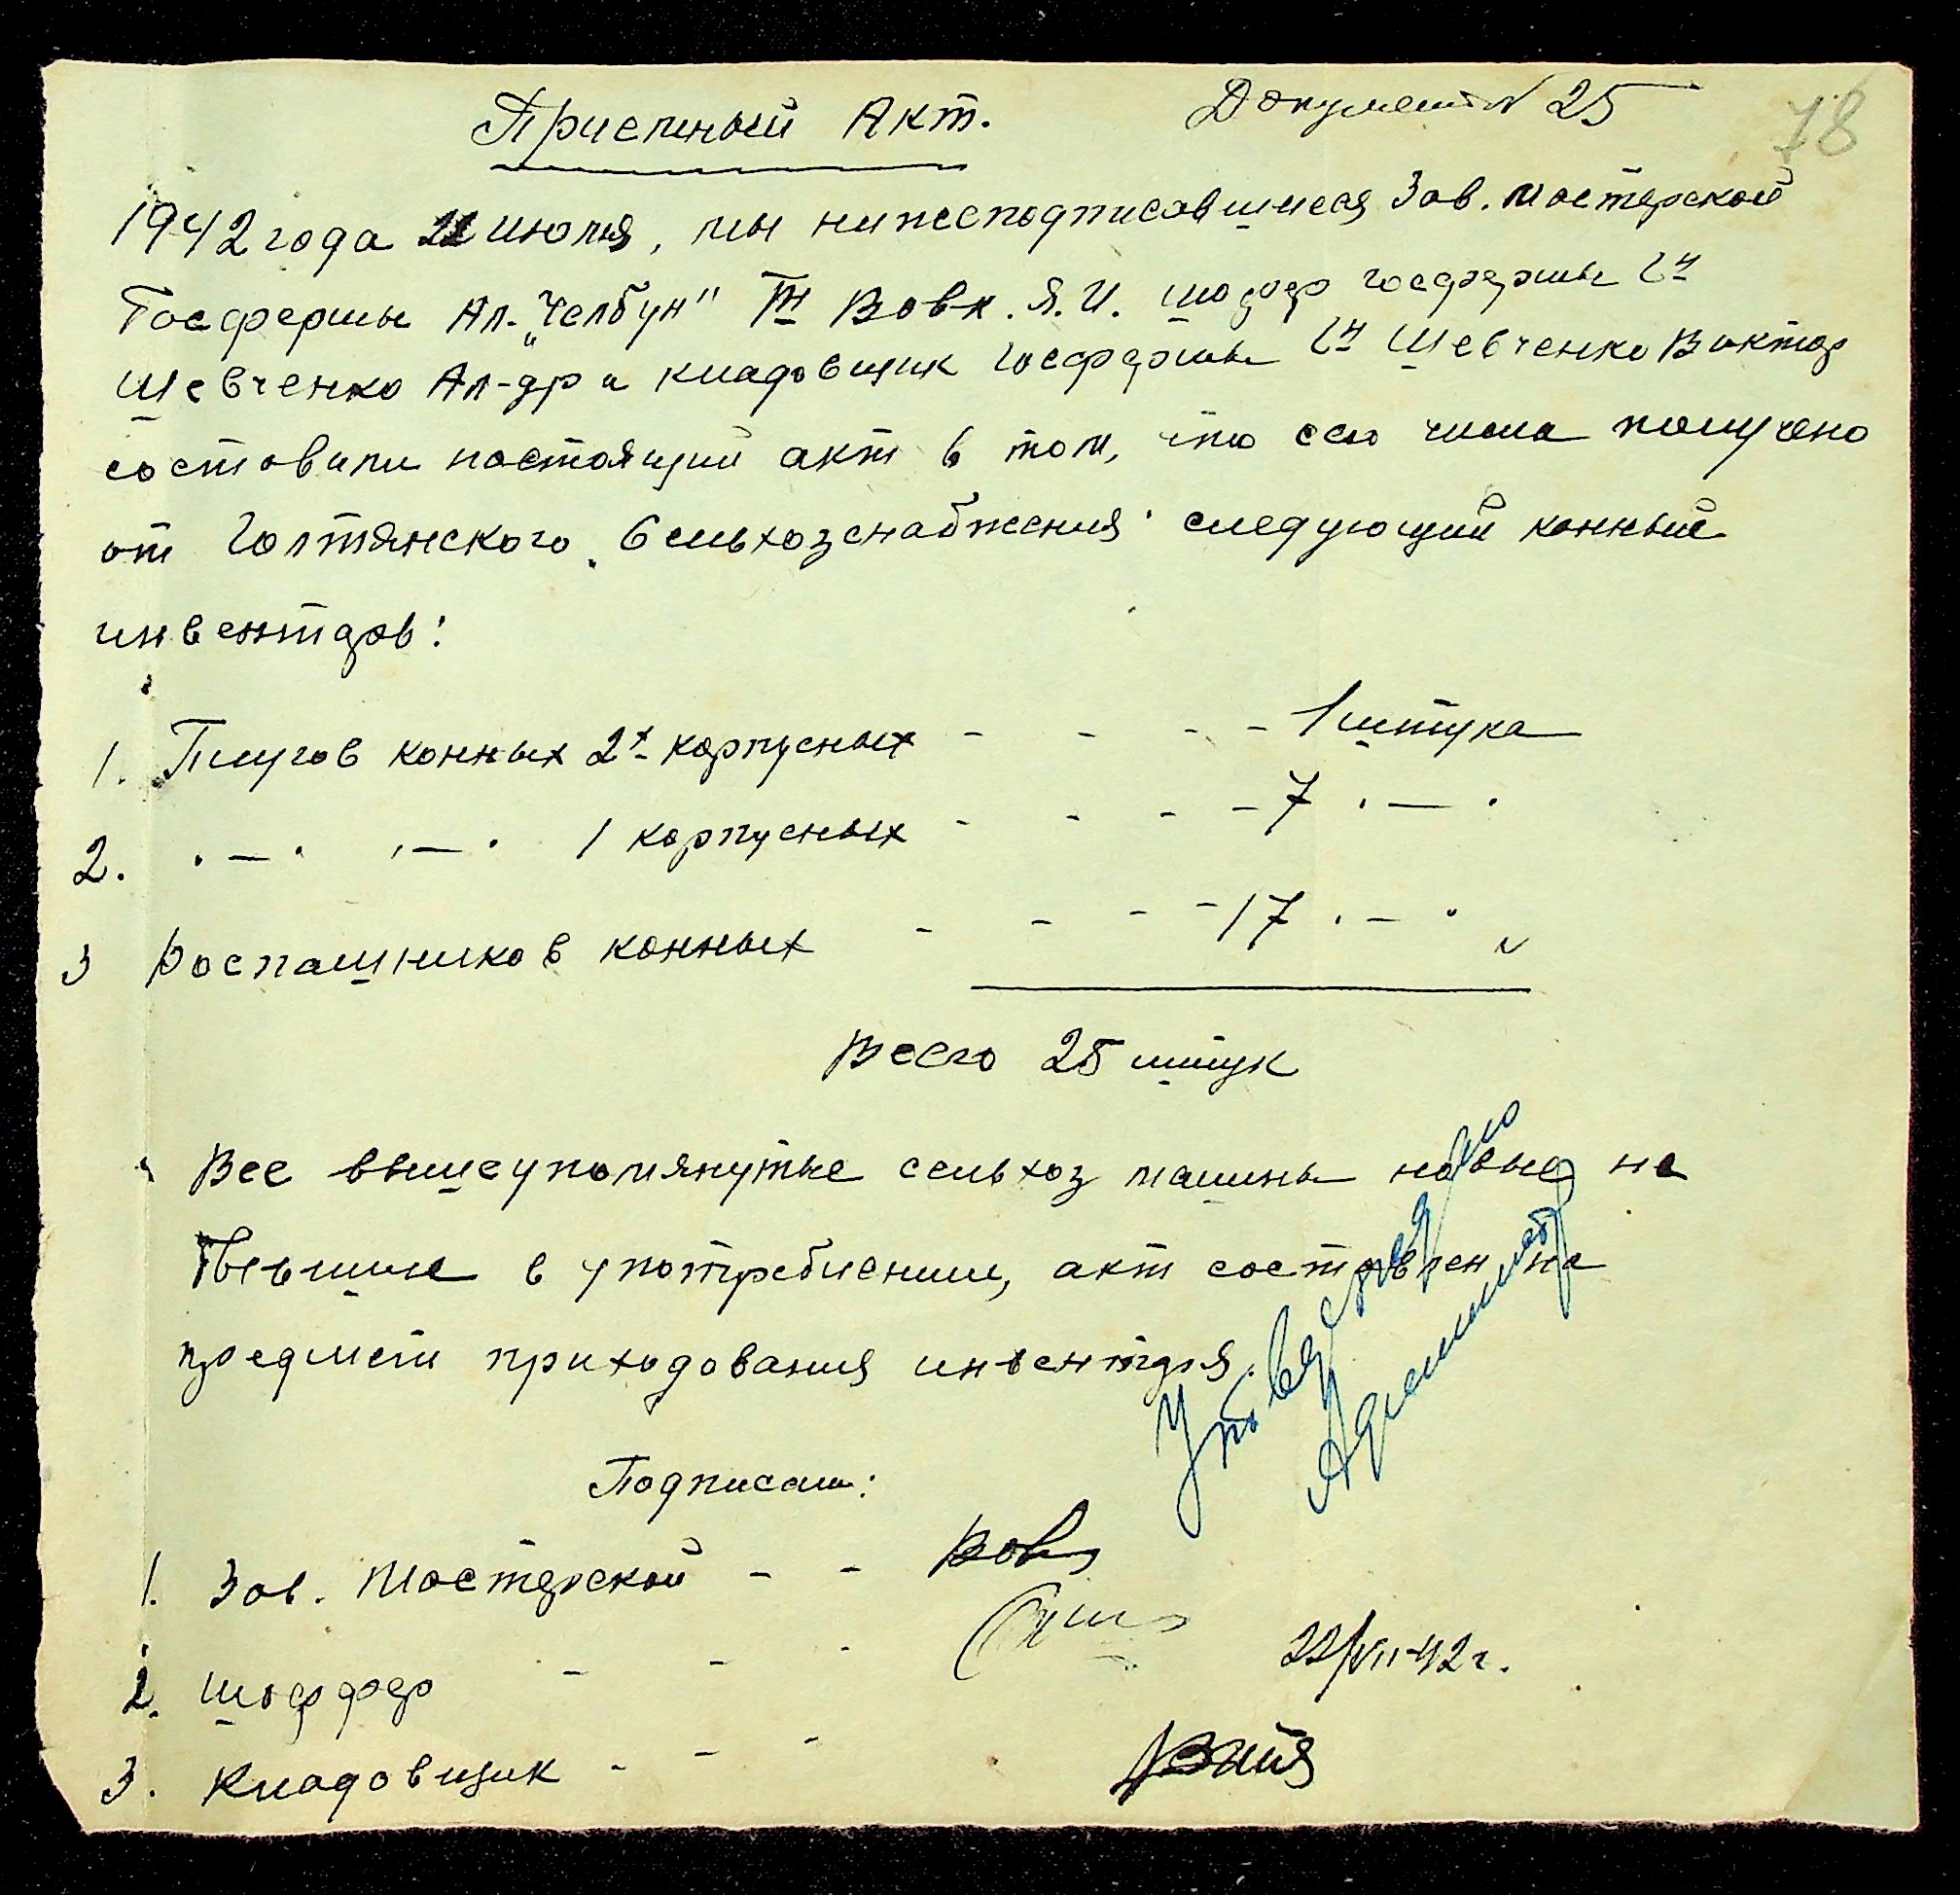 Приемный Акт.
Документ N 25
78
1942 года 22 июля, мы нижеподписавшиеся Зав. мастерской
Госфермы Ал. „Челбун" Вовк. Я. И. шофер госфермы
Шевченко Ал-др и кладовщик госфермы Шевченко Виктор
составили настоящий акт в том, что сего числа получено
от Голтянского „Сельхозснабжения" следующий конный
инвентарь:
1. Плугов конных 2х корпусных - - - - 1 штука
2. "—" "—" 1 корпусных - - - - 7 "—"
3 Роспашников конных - - - - 17 "—"
Всего 25 штук
Все вышеупомянутые сельхоз машины новые не
бывшие в употреблении, акт составлен на
предмет приходования инвентаря.
Утверждаю
Подписали:
1. Зав. Мастерской - - Вовк
2. шоффер - - -
22/VII-42 г.
3. Кладовщик - - -